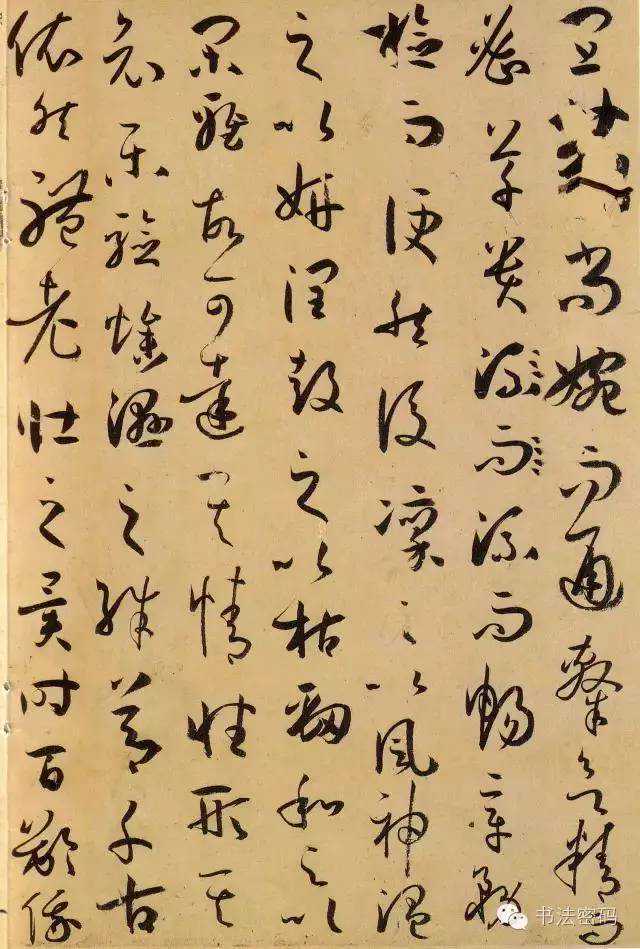 宜篆尚婉而通隸欲精而
密草貴流而流而暢章務
檢而便然後凜之以風神溫
之以妍潤鼓之以枯勁和之以
閑雅故可達其情性形其
哀樂驗燥濕之殊節千古
依然體老壯之異時百齡俄
书法密码